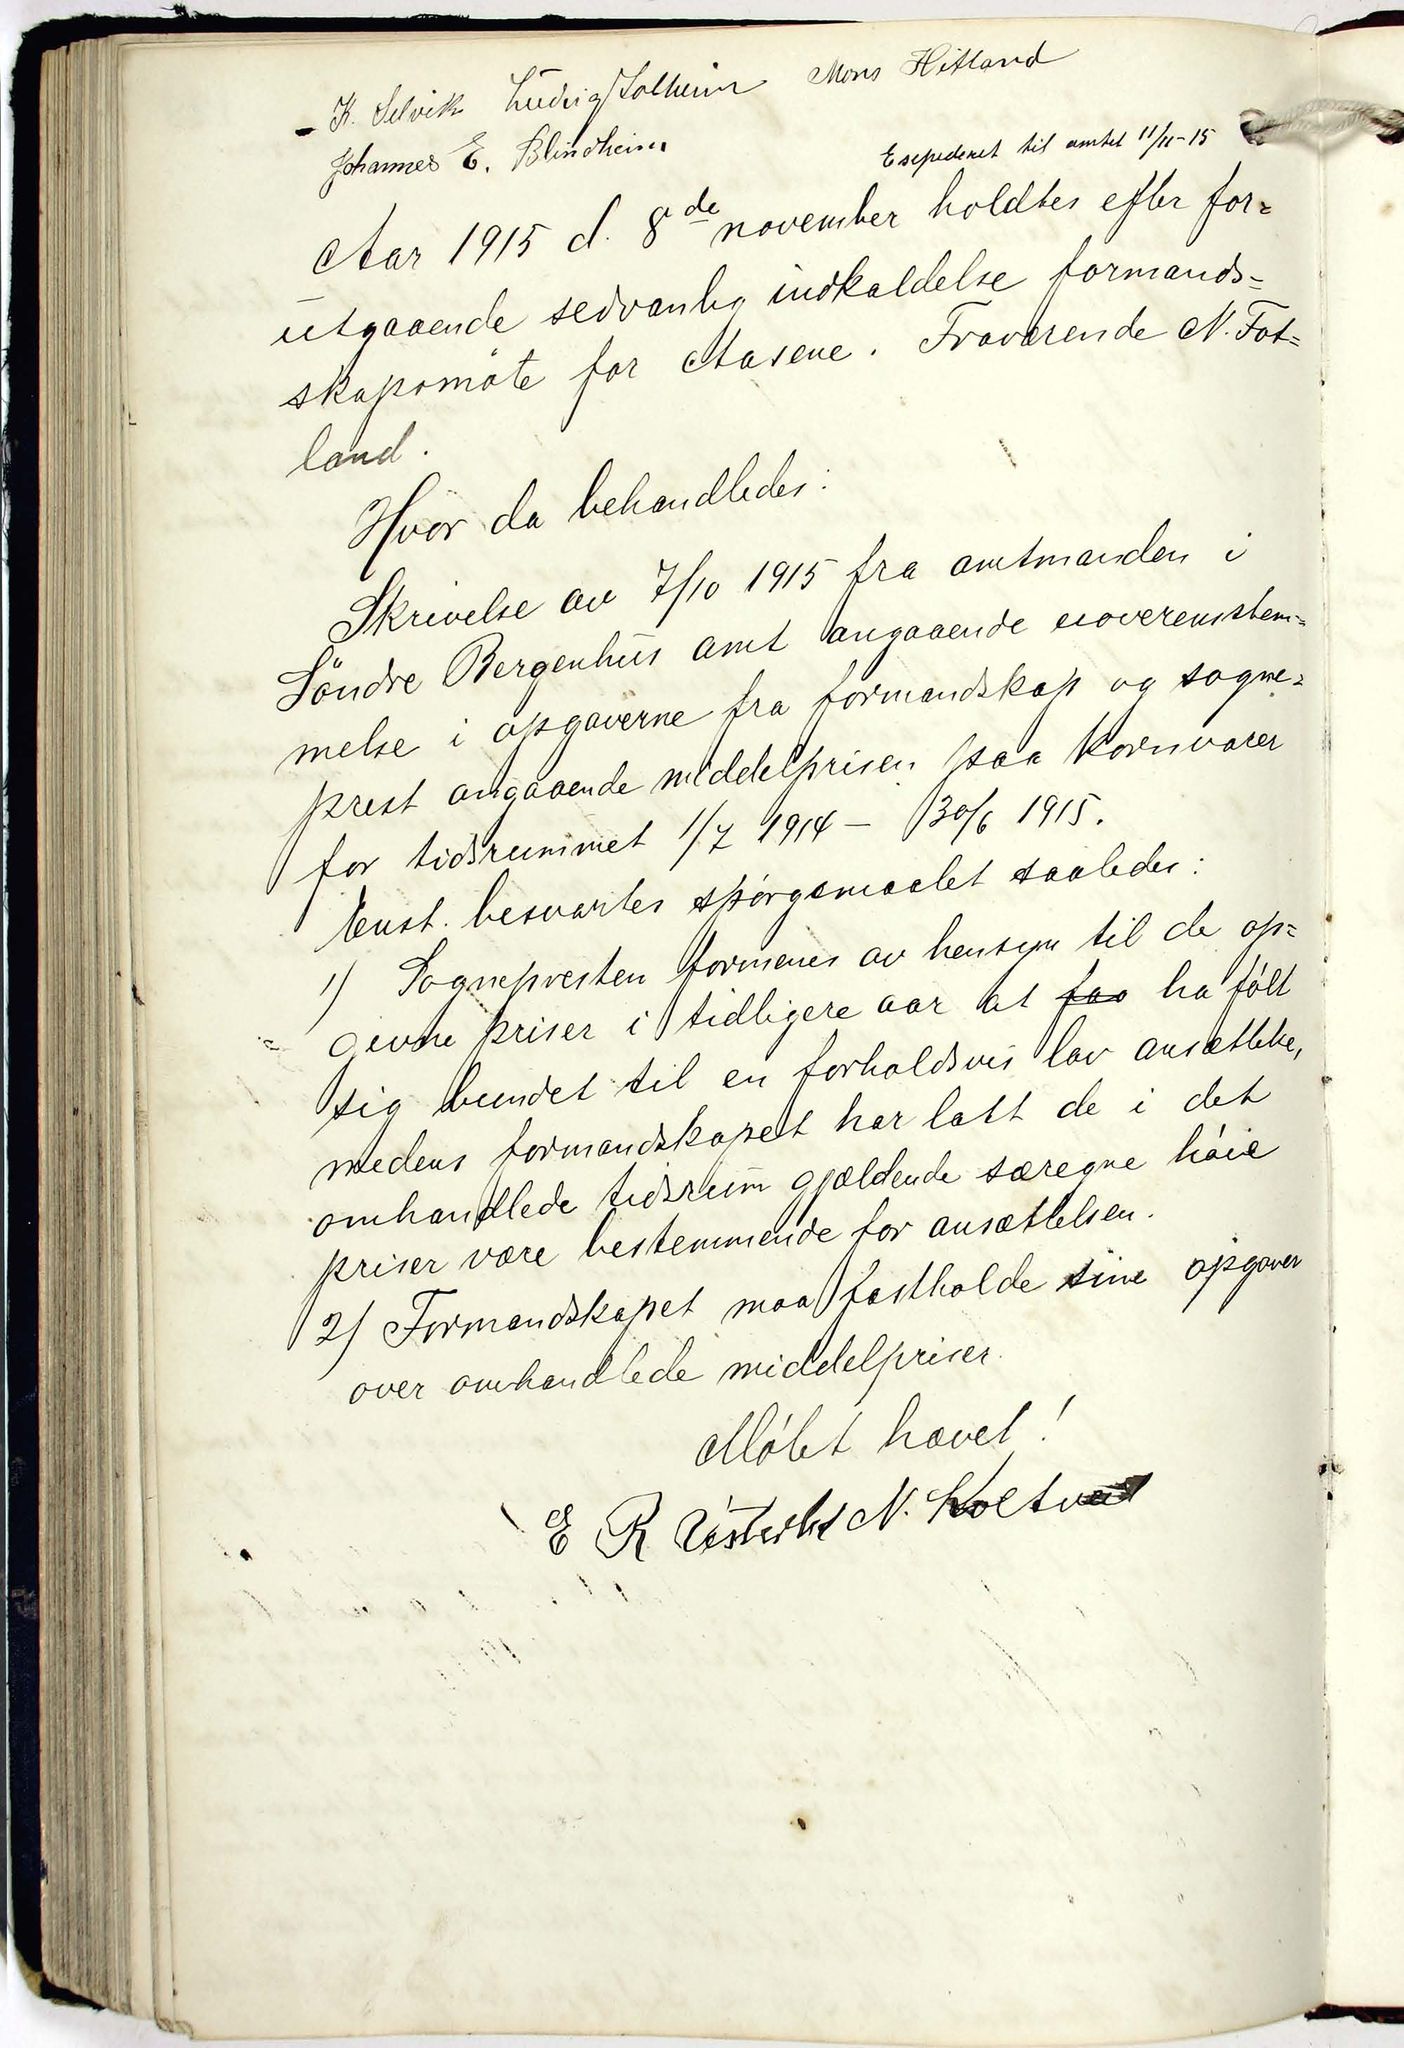 K. Selvik Ludvig Solheim Mons Hitland
Johannes E. Blindheim
Exspederet til amtet 11/11-15
Aar 1915 d. 8de november holdtes efter for=
utgaaende sedvanlig indkaldelse formands=
skapsmøte for Aasene. Fraværende N. Fot=
land.
Hvor da behandledes:
Skrivelse av 7/10 1915 fra amtmanden i
Söndre Bergenhus amt angaaende uoverensstem=
melse i opgaverne fra formandskap og sogne=
prest angaaende middelprisen paa kornvarer
for tidsrummet 1/7 1914 – 30/6 1915.
Enst. besvartes spörgsmaalet saaledes:
1) Sognepresten formenes av hensyn til de op=
givne priser i tidligere aar at faa ha følt
sig bundet til en forholdsvis lav ansættelse,
medens formandskapet har latt de i det
omhandlede tidsrum gjældende særegne høie
priser være bestemmende for ansættelsen.
2) Formandskapet maa fastholde sine opgaver
over omhandlede middelpriser.
Møtet hævet!
E R N.